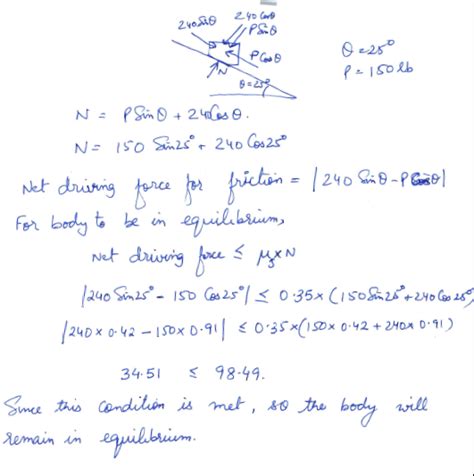 240 Sinθ
240 Cosθ
PSinθ
PCosθ
N
θ=25°
θ=25°
P=150lb
N = PSinθ + 240Cosθ.
N = 150 Sin25° + 240 Cos25°
Net driving force for friction = |240 Sinθ - PCosθ|
For body to be in equilibrium,
Net driving force ≤ μs×N
|240 Sin25° - 150 Cos25°| ≤ 0.35×(150Sin25°+240Cos25°
|240×0.42 - 150×0.91| ≤ 0.35×(150×0.42 + 240×0.91)
34.51 ≤ 98.49.
Since this condition is met, so the body will
remain in equilibrium.